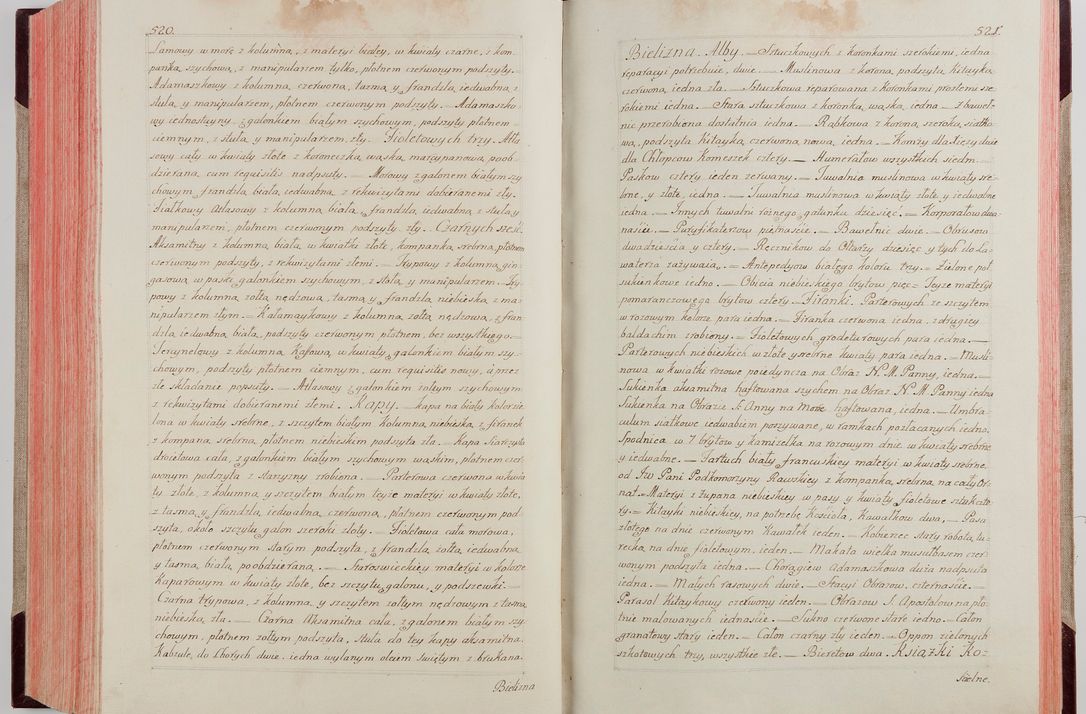 520.
Lamowy w morę z kolumną, z materyi białey, w kwiaty czarne, z kom-
panką szychową, z manipularzem tylko, płotnem czerwonym podszyty. —
Adamaszkowy z kolumną czerwoną, tasmą y frandzlą iedwabną z
stułą y manipularzem, płotnem czerwonym podszyty. — Adamaszko-
wy iednostayny z galonkiem białym szychowym, podszyty płotnem
ciemnym, z stułą y manipularzem, zły. Fioletowych trzy. Atła-
sowy cały w kwiaty złote z koroneczką wąską, marcypanową, poob-
dzieraną, cum requisitis nadpsuty. — Morowy z galonem białym szy-
chowym, frandzlą białą, iedwabną, z rekwizytami dobieranemi zły.
Fiałkowy Atłasowy z kolumną białą, frandzlą, iedwabną, z stułą, y
manipularzem, płotnem czerwonym podszyty zły. Czarnych sześć.
Aksamitny z kolumną białą, w kwiatki złote, kompanką srebrną, płotnem
czerwonym podszyty, z rekwizytami złemi. — Trypowy z kolumną gin-
gasową w paski galonkiem szychowym, z stułą, y manipularzem. — Try-
powy z kolumną żołtą nędzową, tasmą y frandzlą niebieską z ma-
nipularzem złym. — Kałamaykowy z kolumną żołtą nędzową, z fran
dzlą iedwabną białą, podszyty czerwonym płotnem, bez wszystkiego. —
Terzynelowy z kolumną Kaffową, w kwiaty, galonkiem białym szy-
chowym, podszyty płotnem ciemnym, cum requisitis nowy, i przez
złe składanie popsuty. — Atłasowy z galonkiem żołtym szychowym
z rekwizytami dobieranemi złemi. Kapy. — Kapa na biały kolor zie
lona w kwiaty srebrne, z szczytem białym kolumną niebieską, z firanek
z kompaną srebrną, płotnem niebieskim podszyta zła. — Kapa Szarszyto
drocetowa cała, z galonkiem białym szychowym wąskim, płotnem czer-
wonym podszyta z starzyzny zrobiona. — Parterowa czerwona w kwia
ty złote, z kolumną y szczytem białym teyże materyi w kwiaty złote,
z tasmą y frandzlą, iedwabną, czerwoną, płotnem czerwonym, pod-
szyta, około szczytu galon szeroki złoty. — Fioletowa cała morowa,
płotnem czerwonym starym podszyta, z frandzlą żołtą iedwabną
y tasmą białą poobdzieraną. — Turoswieckiey materyi w kolorze
Kaparowym w kwiaty złote, bez szczytu, galonu, y podszewki. —
Czarna trypowa, z kolumną y szczytem żołtym nędzowym z tasmą
niebieską, zła. — Czarna Aksamitna cała, z galonem białym szy
chowym, płotnem żołtym podszyta, stuła do tey kapy aksamitna.
Kabzule, do Chorych dwie. iedna wylanym oleiem Swiętym z brukana.
Bielizna
521.
Bielizna. Alby. — Sztuczkowych z koronkami szerokiemi, iedna
reparacyi potrzebuie, dwie. — Muslinowa z koroną, podszyta Kitayką
czerwoną, iedna zła. — Sztuczkowa reparowana z Koronkami prostemi sze-
rokiemi iedna. — Stara sztuczkowa z koronką, wąską, iedna. — z bawel-
nic przerobiona dostatnia iedna. — Rąbkowa z koroną szeroką, siatko-
wą, podszyta Kitayką czerwoną, nową, iedna. — Komży dla Xięży dwie
dla Chłopcow Komeszek cztery. — Humerałow wszystkich siedm. —
Paskow cztery ieden zerwany. — Tuwalnia muslinowa w kwiaty sre-
brne, y złote, iedna. — Tuwalnia muslinowa w kwiaty złote, y iedwabne
iedna. — Innych tuwalni rożnego gatunku dziesięć. — Korporałow dwa-
nascie. — Puryfikaterzow piętnascie. — Bawelnic dwie. — Obrusow
dwadzieścia y cztery. — Ręcznikow do Ołtarzy dziesięć y tych do La-
waterza zażywaią. — Antepedyow białego koloru trzy. — Zielone poł
sukienkowe iedno. — Obicia niebieskiego brytow pięć — Teyże materyi
pomaranczowego brytow cztery. — Firanki. Parterowych ze szczytem
w rozowym kolorze para iedna. — Firanka czerwona iedna, z drugiey
baldachim zrobiony. — Fioletowych grodeturowych para iedna. —
Parterowych niebieskich w złote y srebrne kwiaty para iedna. — Musli-
nowa w kwiatki rozowe poiedyncza na Obraz N. M. Panny, iedna. —
Sukienka aksamitna haftowana szychem na Obraz N. M. Panny iedna
Sukienka na Obrazie S. Anny na Morze haftowana, iedna. — Umbra-
culum siatkowe iedwabiem poszywane, w ramkach pozłacanych iedno.
Spodnica w 7 brytow y kamizelka na rozowym dnie w kwiaty srebrne
y iedwabne. — Fartuch biały francuskiey materyi w kwiaty srebrne
od JW Pani Podkomorzyny Rawskiey z kompanką, srebrną, na cały Or-
nat. — Materyi z żupana niebieskiey w pasy y kwiaty fioletowe sztuk czte
ry. — Kitayki niebieskiey, na potrzebę Kościoła, Kawałkow dwa. — Pasa
złotego na dnie czerwonym Kawałek ieden. — Kobierzec stary robotą tu-
recką, na dnie fioletowym, ieden. — Makata wielka musułbasem czer
wonym podszyta iedna. — Chorągiew Adamaszkowa duża nadpsuta
iedna. — Małych rasowych dwie. — Stacyi Obrazow, czternascie. —
Parasol Kitaykowy czerwony ieden. — Obrazow S. Apostołow na pło-
tnie malowanych iednaście. — Sukno czerwone stare iedno. — Całon
granatowy stary ieden. — Całon czarny zły ieden. — Oppon zielonych
szkotowych trzy, wszystkie złe. — Bieretow dwa. Książki Ko-
ścielne.